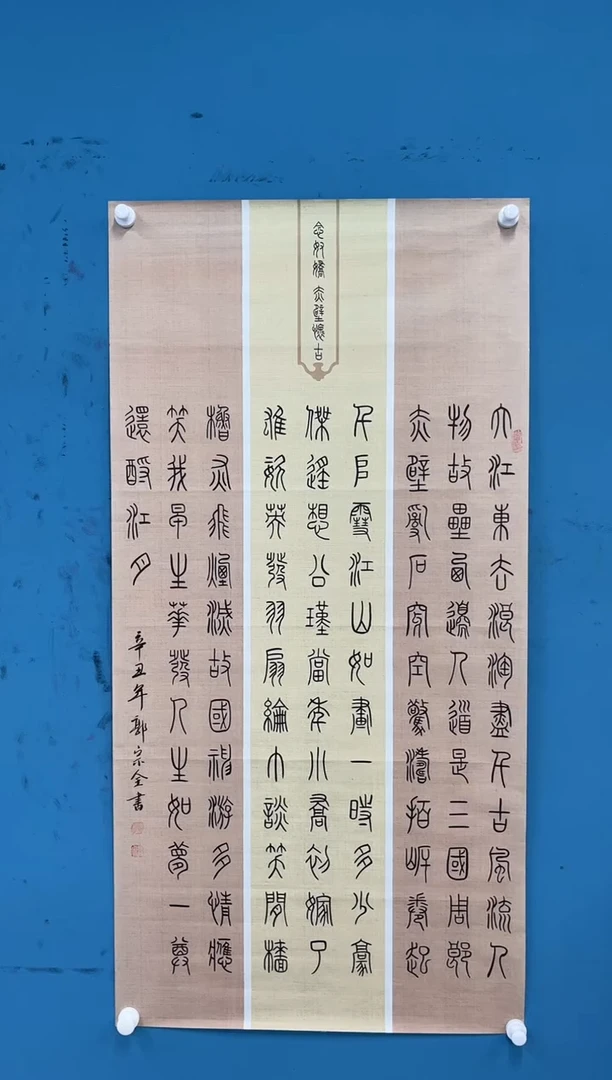 念奴嬌 赤壁懷古
大江東去浪淘盡千古風流人
物故壘西邊人道是三國周郎
赤壁亂石穿空驚濤拍岸卷起
千堆雪江山如畫一時多少豪
傑遙想公瑾當年小喬初嫁了
雄姿英發羽扇綸巾談笑間檣
櫓灰飛煙滅故國神游多情應
笑我早生華發人生如夢一尊
還酹江月
辛丑年郭宗全書